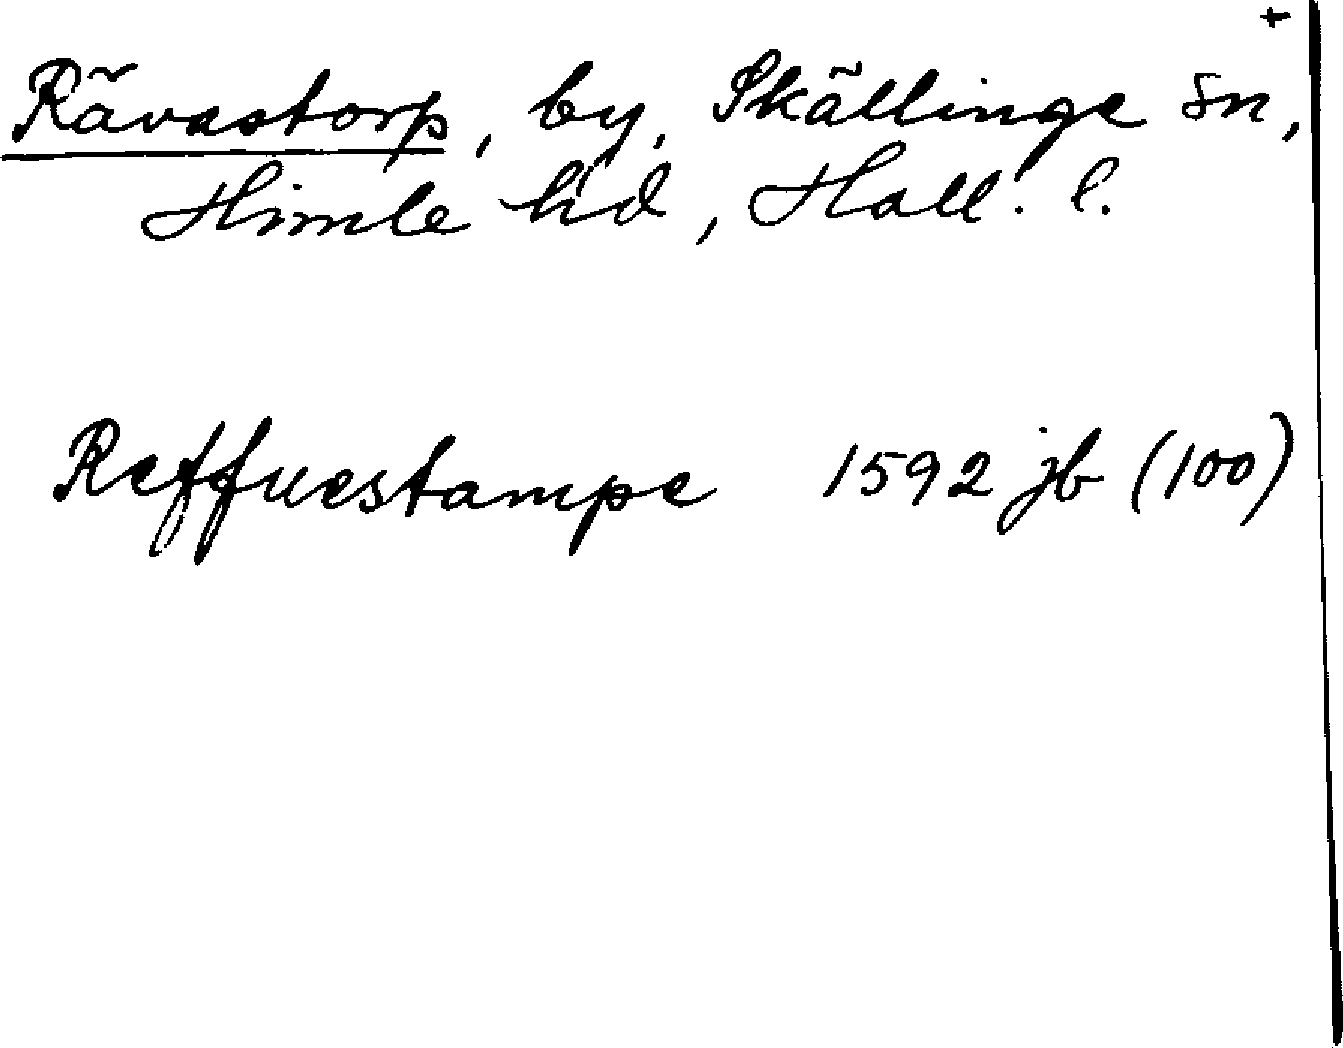 +
Rävastorp, by, Skällinge sn,
Himle hd, Hall. l.
Reffuestampe 1592 jb (100)